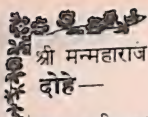 श्री मन्महाराज
दोहे—